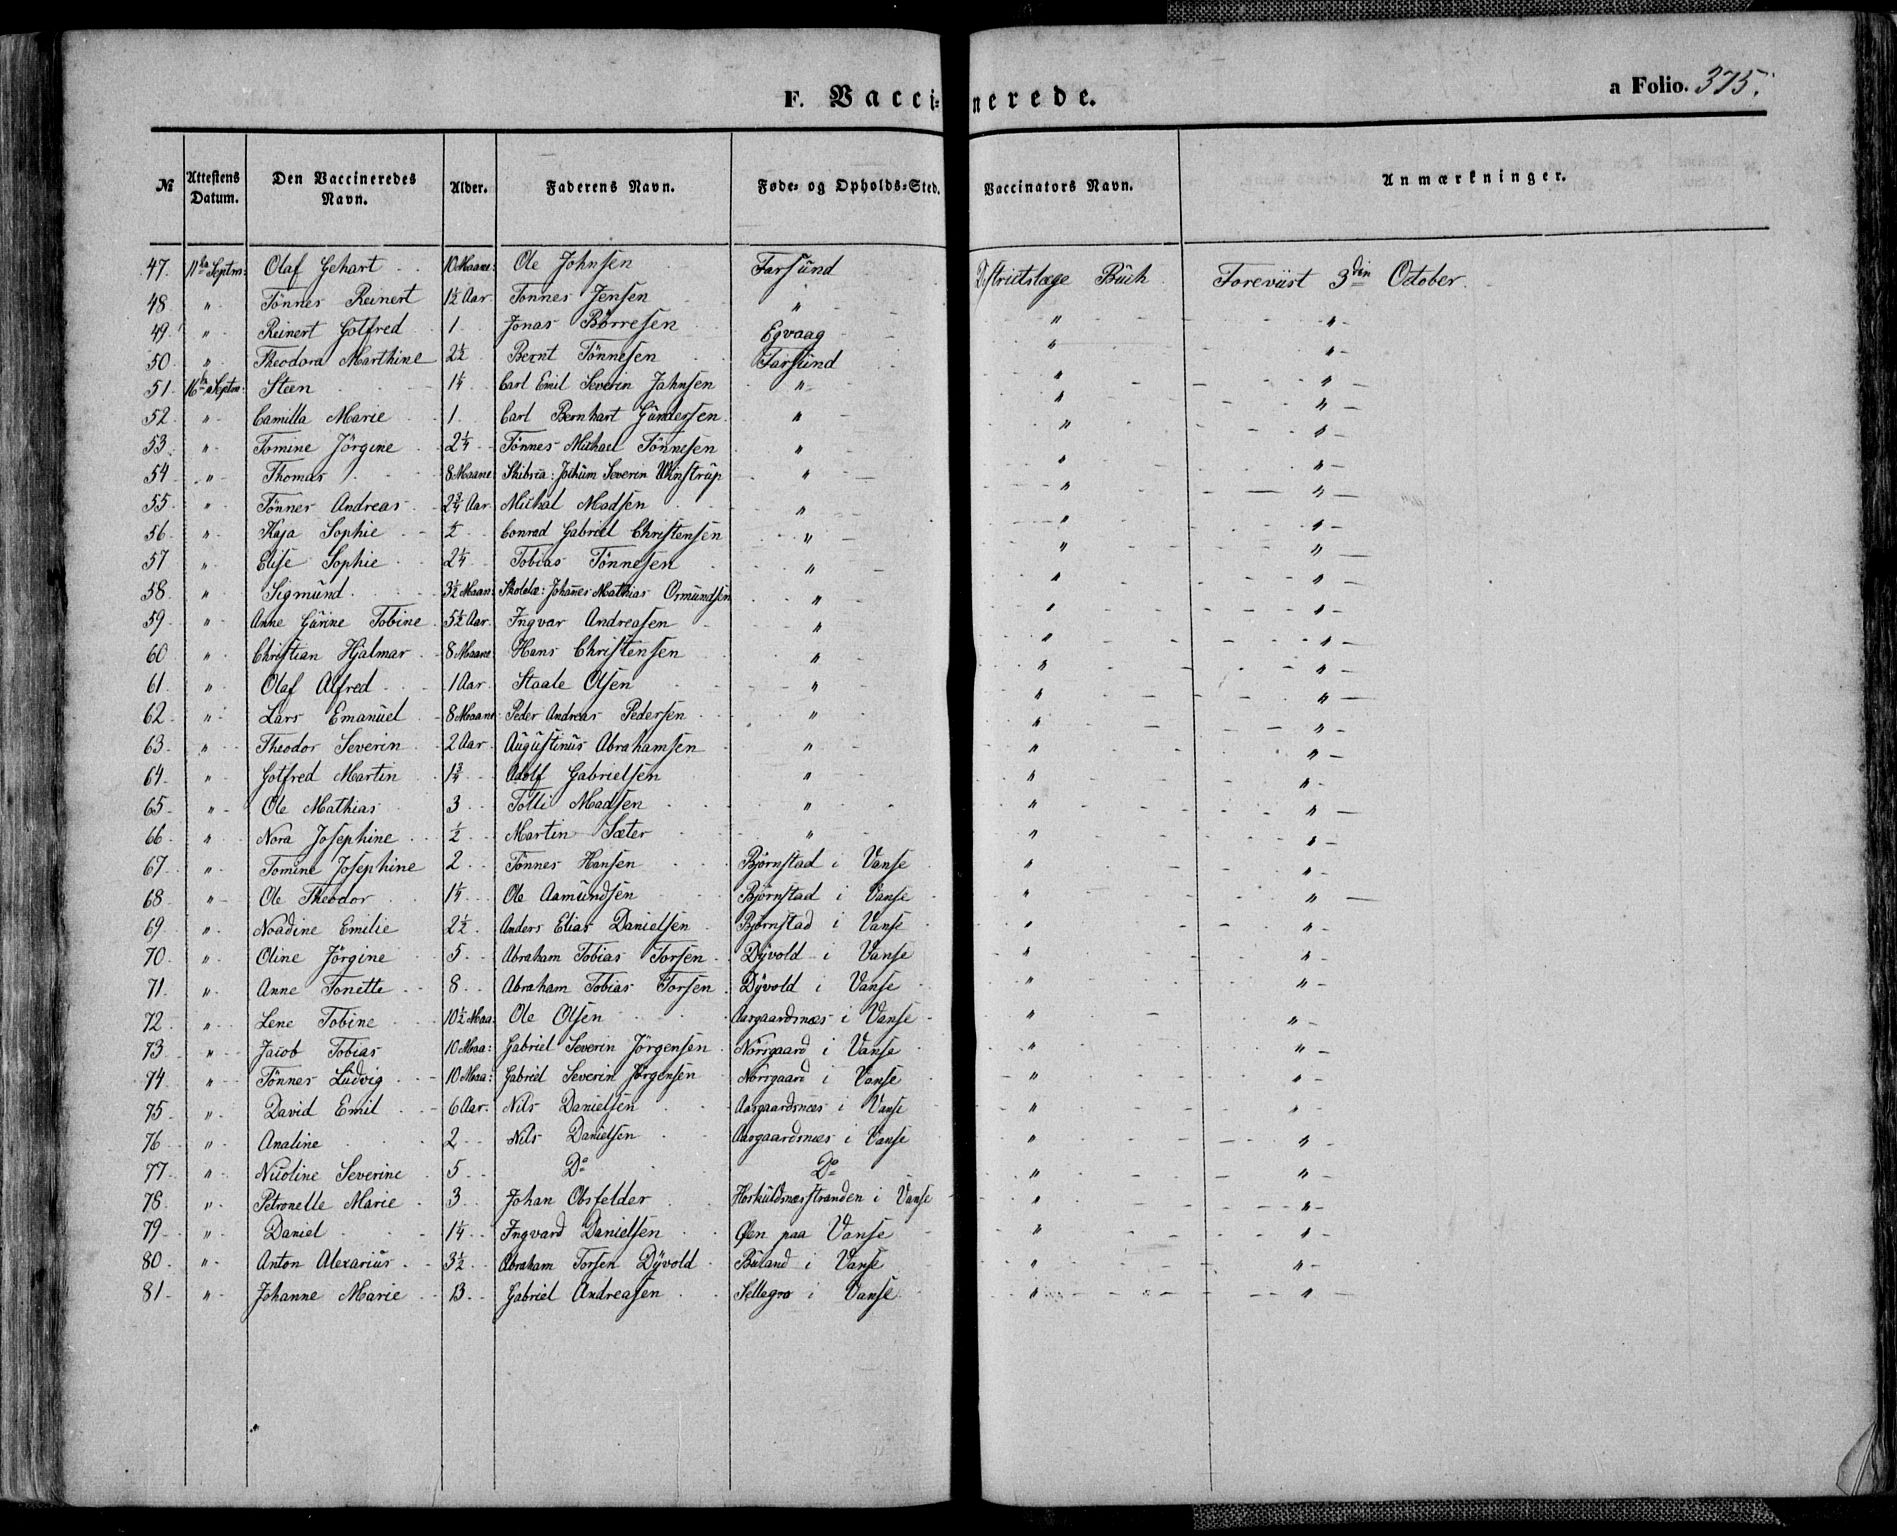 F. Vaccinerede.
a Folio. 375.
№ | Attestens Datum. | Den Vaccineredes Navn. | Alder. | Faderens Navn. | Føde- og Opholds-Sted. | Vaccinators Navn. | Anmærkninger.
47. | 11te Septm: | Olaf Gehart | 10 Maane: | Ole Johnsen | Farsund | Distrietslæge Buch | Foreviist 3die October.
48 | " | Tönnes Reinert | 1½ Aar. | Tönnes Jensen | " | " | "
49. | " | Reinert Gotfred | 1 | Jonas Börresen | Egvaag | " | "
50. | " | Theodora Marthine | 2½ | Bernt Tönnesen | Farsund | " | "
51. | 16de Septm: | Steen | 1¼ | Carl Emil Severin Jahnsen | " | " | "
52. | " | Camilla Marie | 1. | Carl Bernhart Gundersen | " | " | "
53. | " | Tomine Jörgine | 2¼ | Tönnes Michael Tönnesen | " | " | "
54 | " | Thomas | 8 Maane | Jochum Severin Winstrup | " | " | "
55 | " | Tönnes Andreas | 2¾ Aar. | Michal Madsen | " | " | "
56 | " | Kaja Sophie | ½ | Conrad Gabriel Christensen | " | " | "
57 | " | Elise Sophie | 2¼ | Tobias Tönnesen | " | " | "
58. | " | Sigmund | 3½ Maan: | Skolelæ: Johannes Mathias Ormundsen | " | " | "
59. | " | Anne Gurine Tobine | 5½ Aar. | Ingvar Andreasen | " | " | "
60 | " | Christian Hjalmar | 8 Maane | Hans Christensen | " | " | "
61. | " | Olaf Alfred | 1 Aar. | Staale Olsen | " | " | "
62 | " | Lars Emanuel | 8 Maane | Peder Andreas Pedersen | " | " | "
63. | " | Theodor Severin | 2 Aar. | Augustinus Abrahamsen | " | " | "
64. | " | Gotfred Martin | 1¾ | Adolf Gabrielsen | " | " | "
65. | " | Ole Mathias | 3 | Tolli Madsen | " | " | "
66. | " | Nora Josephine | ½ | Martin Sæter | " | " | "
67. | " | Tomine Josephine | 2 | Tönnes Hansen | Björnstad i Vanse | " | "
68. | " | Ole Theodor | 1¼ | Ole Aamundsen | Björnstad i Vanse | " | "
69. | " | Noadine Emilie | 2½ | Anders Elias Danielsen | Björnstad i Vanse | " | "
70. | " | Oline Jörgine | 5 | Abraham Tobias Torsen | Dyvold i Vanse | " | "
71. | " | Anne Tonette | 8 | Abraham Tobias Torsen | Dyvold i Vanse | " | "
72. | " | Lene Tobine | 10½ Maa: | Ole Olsen | Aargaardsnæs i Vanse | " | "
73. | " | Jacob Tobias | 10 Maa: | Gabriel Severin Jörgensen | Norsgaard i Vanse | " | "
74 | " | Tönnes Ludvig | 10 Maa: | Gabriel Severin Jörgensen | Norsgaard i Vanse | " | "
75. | " | David Emil | 6 Aar. | Nils Danielsen | Aargaardsnæs i Vanse | " | "
76 | " | Analine | 2 | Nils Danielsen | Aargaardsnæs i Vanse | " | "
77. | " | Nicoline Severine | 5 | Do | Do | " | "
78. | " | Petronelle Marie | 3 | Johan Obsfelder | Høskuldsnæsstranden i Vanse | " | "
79. | " | Daniel | 1¼ | Ingvard Danielsen | Øen paa Vanse | " | "
80. | " | Anton Alexarius | 3½ | Abraham Torsen Dyvold | Buland i Vanse | " | "
81. | " | Johanne Marie | 13 | Gabriel Andreasen | Sellegro i Vanse | " | "